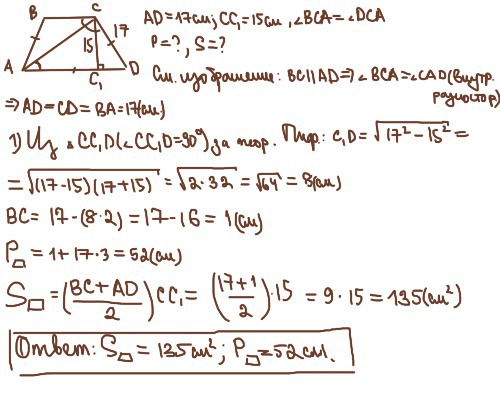 B C 17
15
A C₁ D
AD=17см; CC₁=15см, ∠BCA=∠DCA
P=?, S=?
См. изображение: BC∥AD⇒∠BCA=∠CAD(внутр. разностор)
⇒AD=CD=BA=17(см)
1) Из △CC₁D(∠CC₁D=90°) за теор. Пиф.: C₁D=√(17²-15²)=
=√((17-15)(17+15))=√(2·32)=√64=8(см)
BC=17-(8·2)=17-16=1(см)
P▱=1+17·3=52(см)
S▱=((BC+AD)/2)CC₁=((17+1)/2)·15=9·15=135(см²)
Ответ: S▱=135см²; P▱=52см.